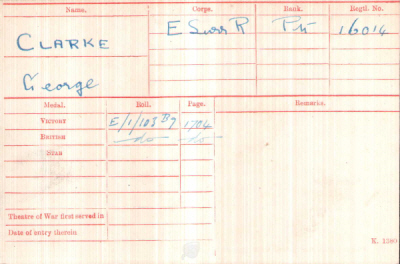 Name. Corps. Rank. Regtl. No.
CLARKE E Surr R Pte 16014
George
Medal. Roll. Page. Remarks.
VICTORY E/1/103 B7 1704
BRITISH do do
STAR
Theatre of War first served in
Date of entry therein
K. 1380